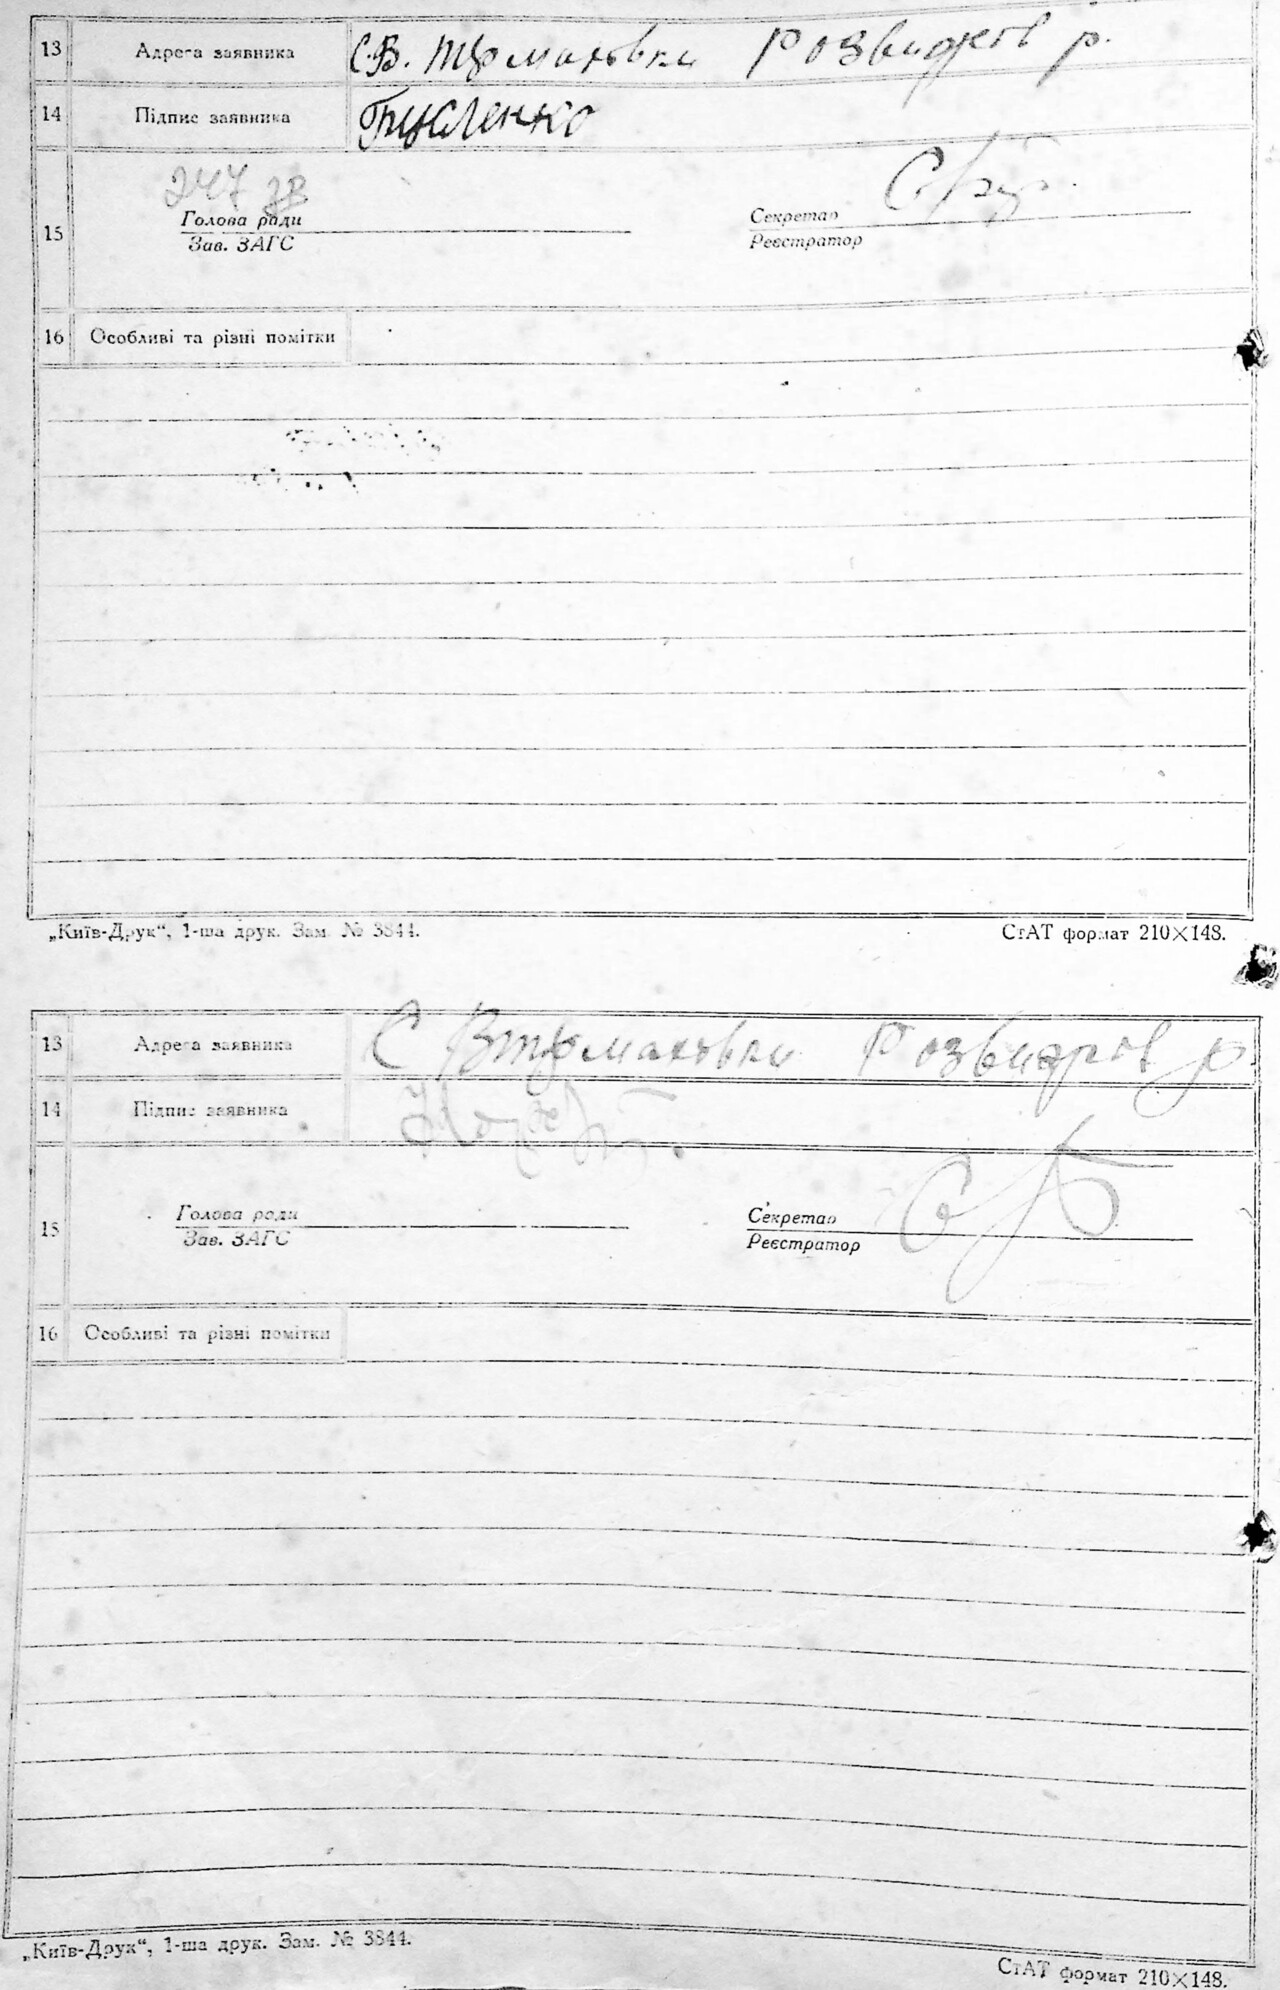 13 Адреса заявника С.В. Термаховка Розважів р.
14 Підпис заявника
247
15 Голова ради Секретар
Зав. ЗАГС Реєстратор
16 Особливі та різні помітки
„Київ-Друк“, 1-ша друк. Зам. № 3844. СтАТ формат 210×148.
13 Адреса заявника С Розважів р.
14 Підпис заявника
15 Голова ради Секретар
Зав. ЗАГС Реєстратор
16 Особливі та різні помітки
„Київ-Друк“, 1-ша друк. Зам. № 3844. СтАТ формат 210×148.